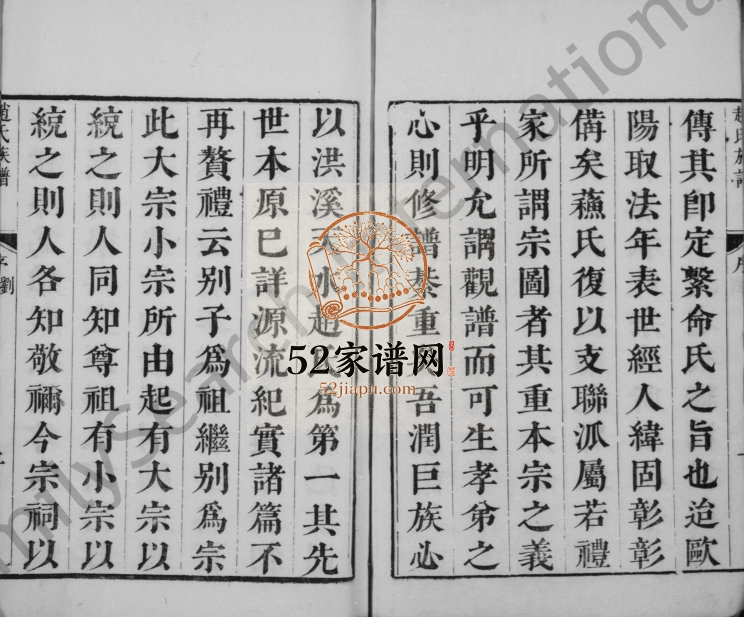 傳其卽定繫命氏之旨也迨歐
陽取法年表世經人緯固彰彰
備矣蘓氏復以支聯派屬若禮
家所謂宗圖者其重本宗之義
乎明允謂觀譜而可生孝弟之
心則修譜綦重 吾潤巨族必
以洪溪天水趙氏爲第一其先
世本原已詳源流紀實諸篇不
再贅禮云别子爲祖繼别爲宗
此大宗小宗所由起有大宗以
統之則人同知尊祖有小宗以
統之則人各知敬禰今宗祠以
趙氏族譜
序劉
趙氏族譜
序
52家谱网
52jiapu.com
FamilySearch International